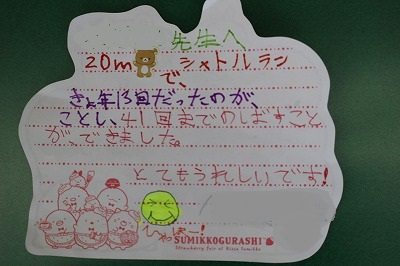 先生へ
20m シャトルラン
で、
きょ年13回だったのが、
ことし、41回までのばすこと
が、できました。
とてもうれしいです!
いやほー!
SUMIKKOGURASHI
Strawberry Fair at Kissa Sumikko